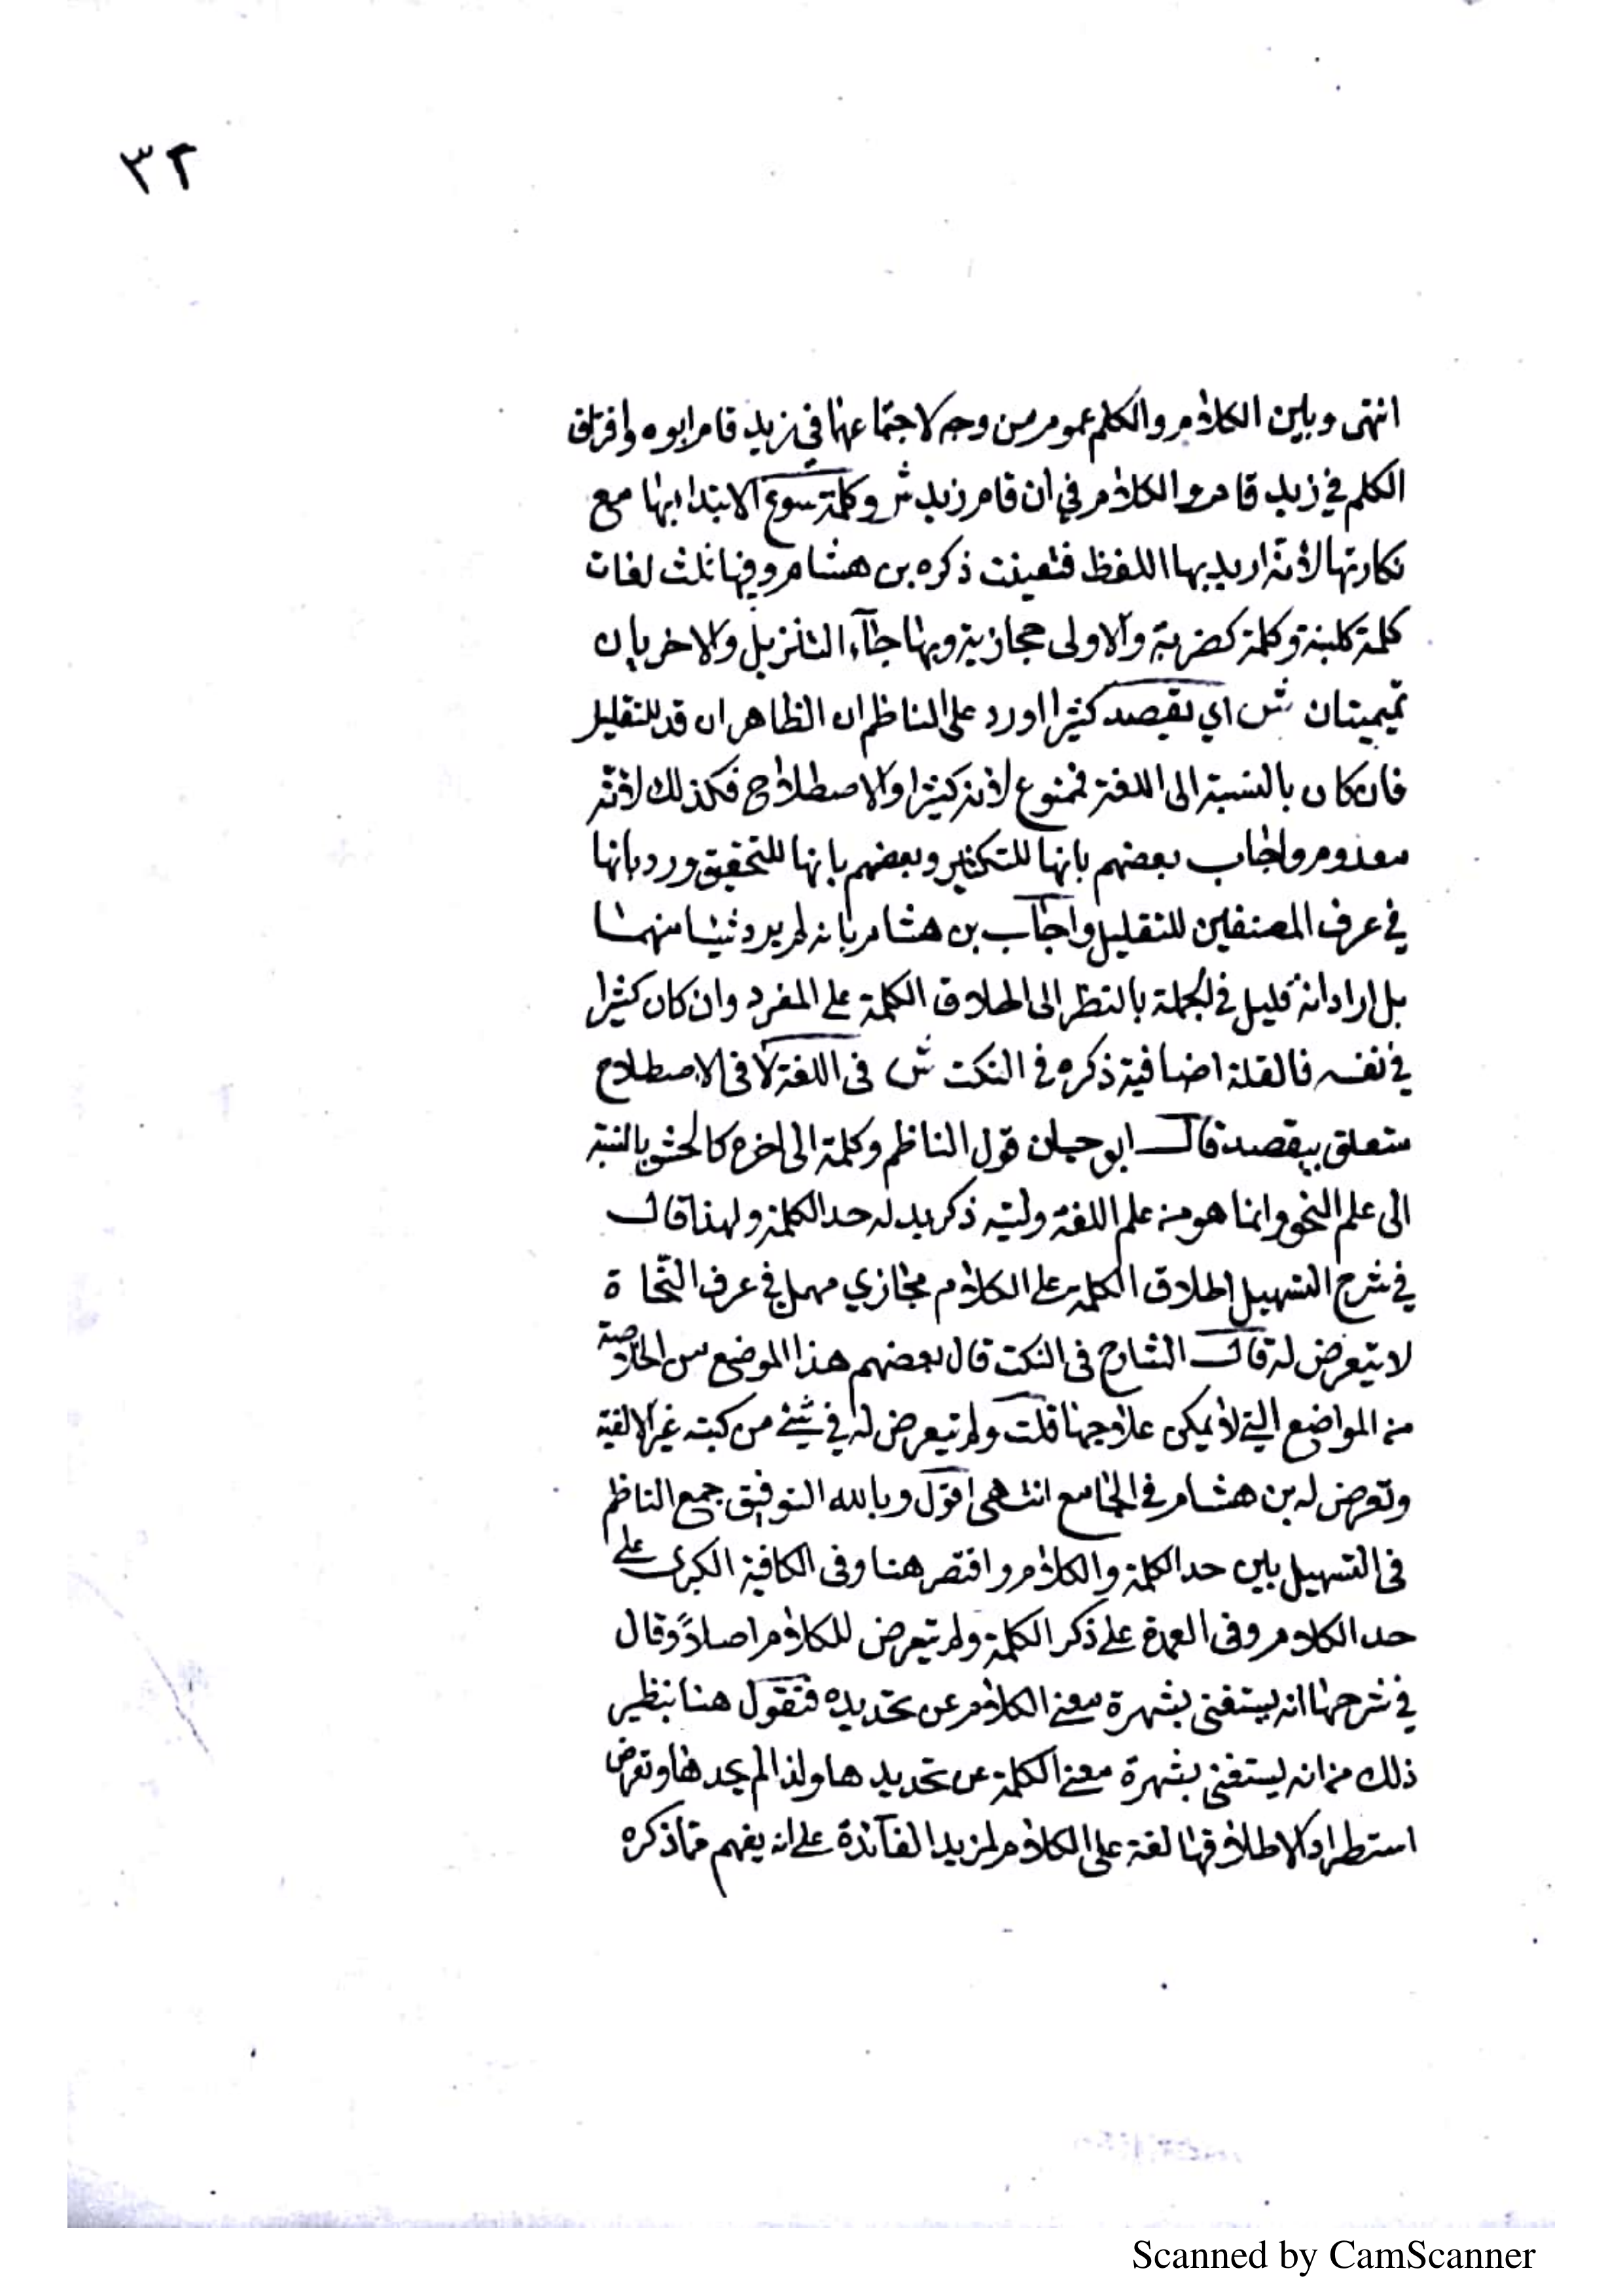 ٣٢
انتهى وبين الكلام والكلم عموم من وجه لاجتماعهما في زيد قام ابوه وافتراق
الكلم في زيد قام والكلام في ان قام زيد ش وكلمة سوغ الابتدا بها مع
نكارتها لانه اريد بها اللفظ فتعينت ذكره بن هشام وفيها ثلث لغات
كلمة كلبنة وكلمة كضربة والاولى حجازية وبها جآء التنزيل والاخريان
تميميتان ش اي يقصد كثيرا اورد على الناظم ان الظاهر ان قد للتقليل
فان كان بالنسبة الى اللغة فممنوع لانه كثير او الاصطلاح فكذلك لانه
معدوم واجاب بعضهم بانها للتكثير وبعضهم بانها للتحقيق ورد بانها
في عرف المصنفين للتقليل واجاب بن هشام بانه لم يرد شيئا منهما
بل اراد انه قليل في الجملة بالنظر الى اطلاق الكلمة على المفرد وان كان كثيرا
في نفسه فالقلة اضافية ذكره في النكت ش في اللغة لا في الاصطلاح
متعلق بيقصد قال ابو حيان قول الناظم وكلمة الى اخره كالحشو بالنسبة
الى علم النحو وانما هو من علم اللغة وليته ذكر بدله حد الكلمة ولهذا قال
في شرح التسهيل اطلاق الكلمة على الكلام مجازي مهمل في عرف النحاة
لا يتعرض له قال الشارح في النكت قال بعضهم هذا الموضع من الخلاصة
من المواضع التي لا يمكن علاجها قلت ولم يتعرض له في شيئ من كتبه غير الالفية
وتعرض له بن هشام في الجامع انتهى اقول وبالله التوفيق جمع الناظم
في التسهيل بين حد الكلمة والكلام واقتصر هنا وفي الكافية الكبرى على
حد الكلام وفي العمدة على ذكر الكلمة ولم يتعرض للكلام اصلاً وقال
في شرحها انه يستغنى بشهرة معنى الكلام عن تحديده فنقول هنا بنظير
ذلك من انه يستغنى بشهرة معنى الكلمة عن تحديدها ولذا لم يحدها وتعرض
استطرادا لاطلاقها لغة على الكلام لمزيد الفآئدة على انه يفهم مما ذكره
Scanned by CamScanner